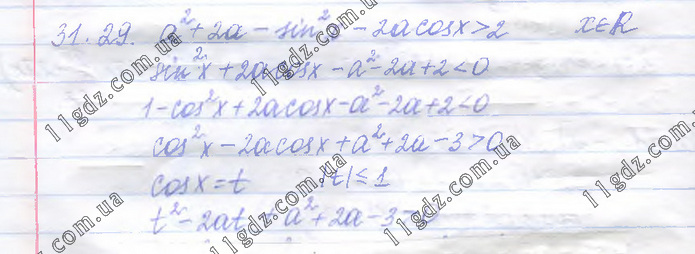 31.29. a² + 2a - sin² - 2a cosx > 2 x∈R
sin²x + 2a cosx - a² - 2a + 2 < 0
1 - cos²x + 2a cosx - a² - 2a + 2 < 0
cos²x - 2a cosx + a² + 2a - 3 > 0
cosx = t |t| ≤ 1
t² - 2at a² + 2a - 3
11gdz.com.ua
11gdz.com.ua
11gdz.com.ua
11gdz.com.ua
11gdz.com.ua
11gdz.com.ua